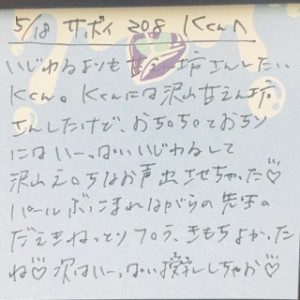 5/18 サボイ 208 Kくんへ
いじわるよりも甘えん坊さんしたい
Kくん。Kくんには沢山甘えん坊
さんしたけど、おち○ち○とおちり
にはいーっぱいいじわるして
沢山エロちなお声出せちゃった♡
パールボこまれながらの先生の
だえきねっとりフェラ、きもちよかった
ね♡次はいーっぱい授乳しちゃお♡